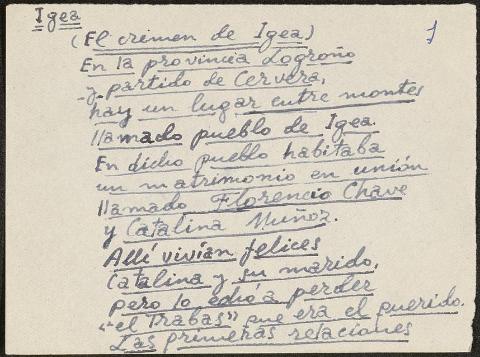 Igea
1
(El crimen de Igea)
En la provincia Logroño
y partido de Cervera,
hay un lugar entre montes
llamado pueblo de Igea.
En dicho pueblo habitaba
un matrimonio en unión
llamado Florencio Chave
y Catalina Muñoz.
Allí vivían felices
Catalina y su marido,
pero lo echó a perder
"el Trabas" que era el querido.
Las primeras relaciones